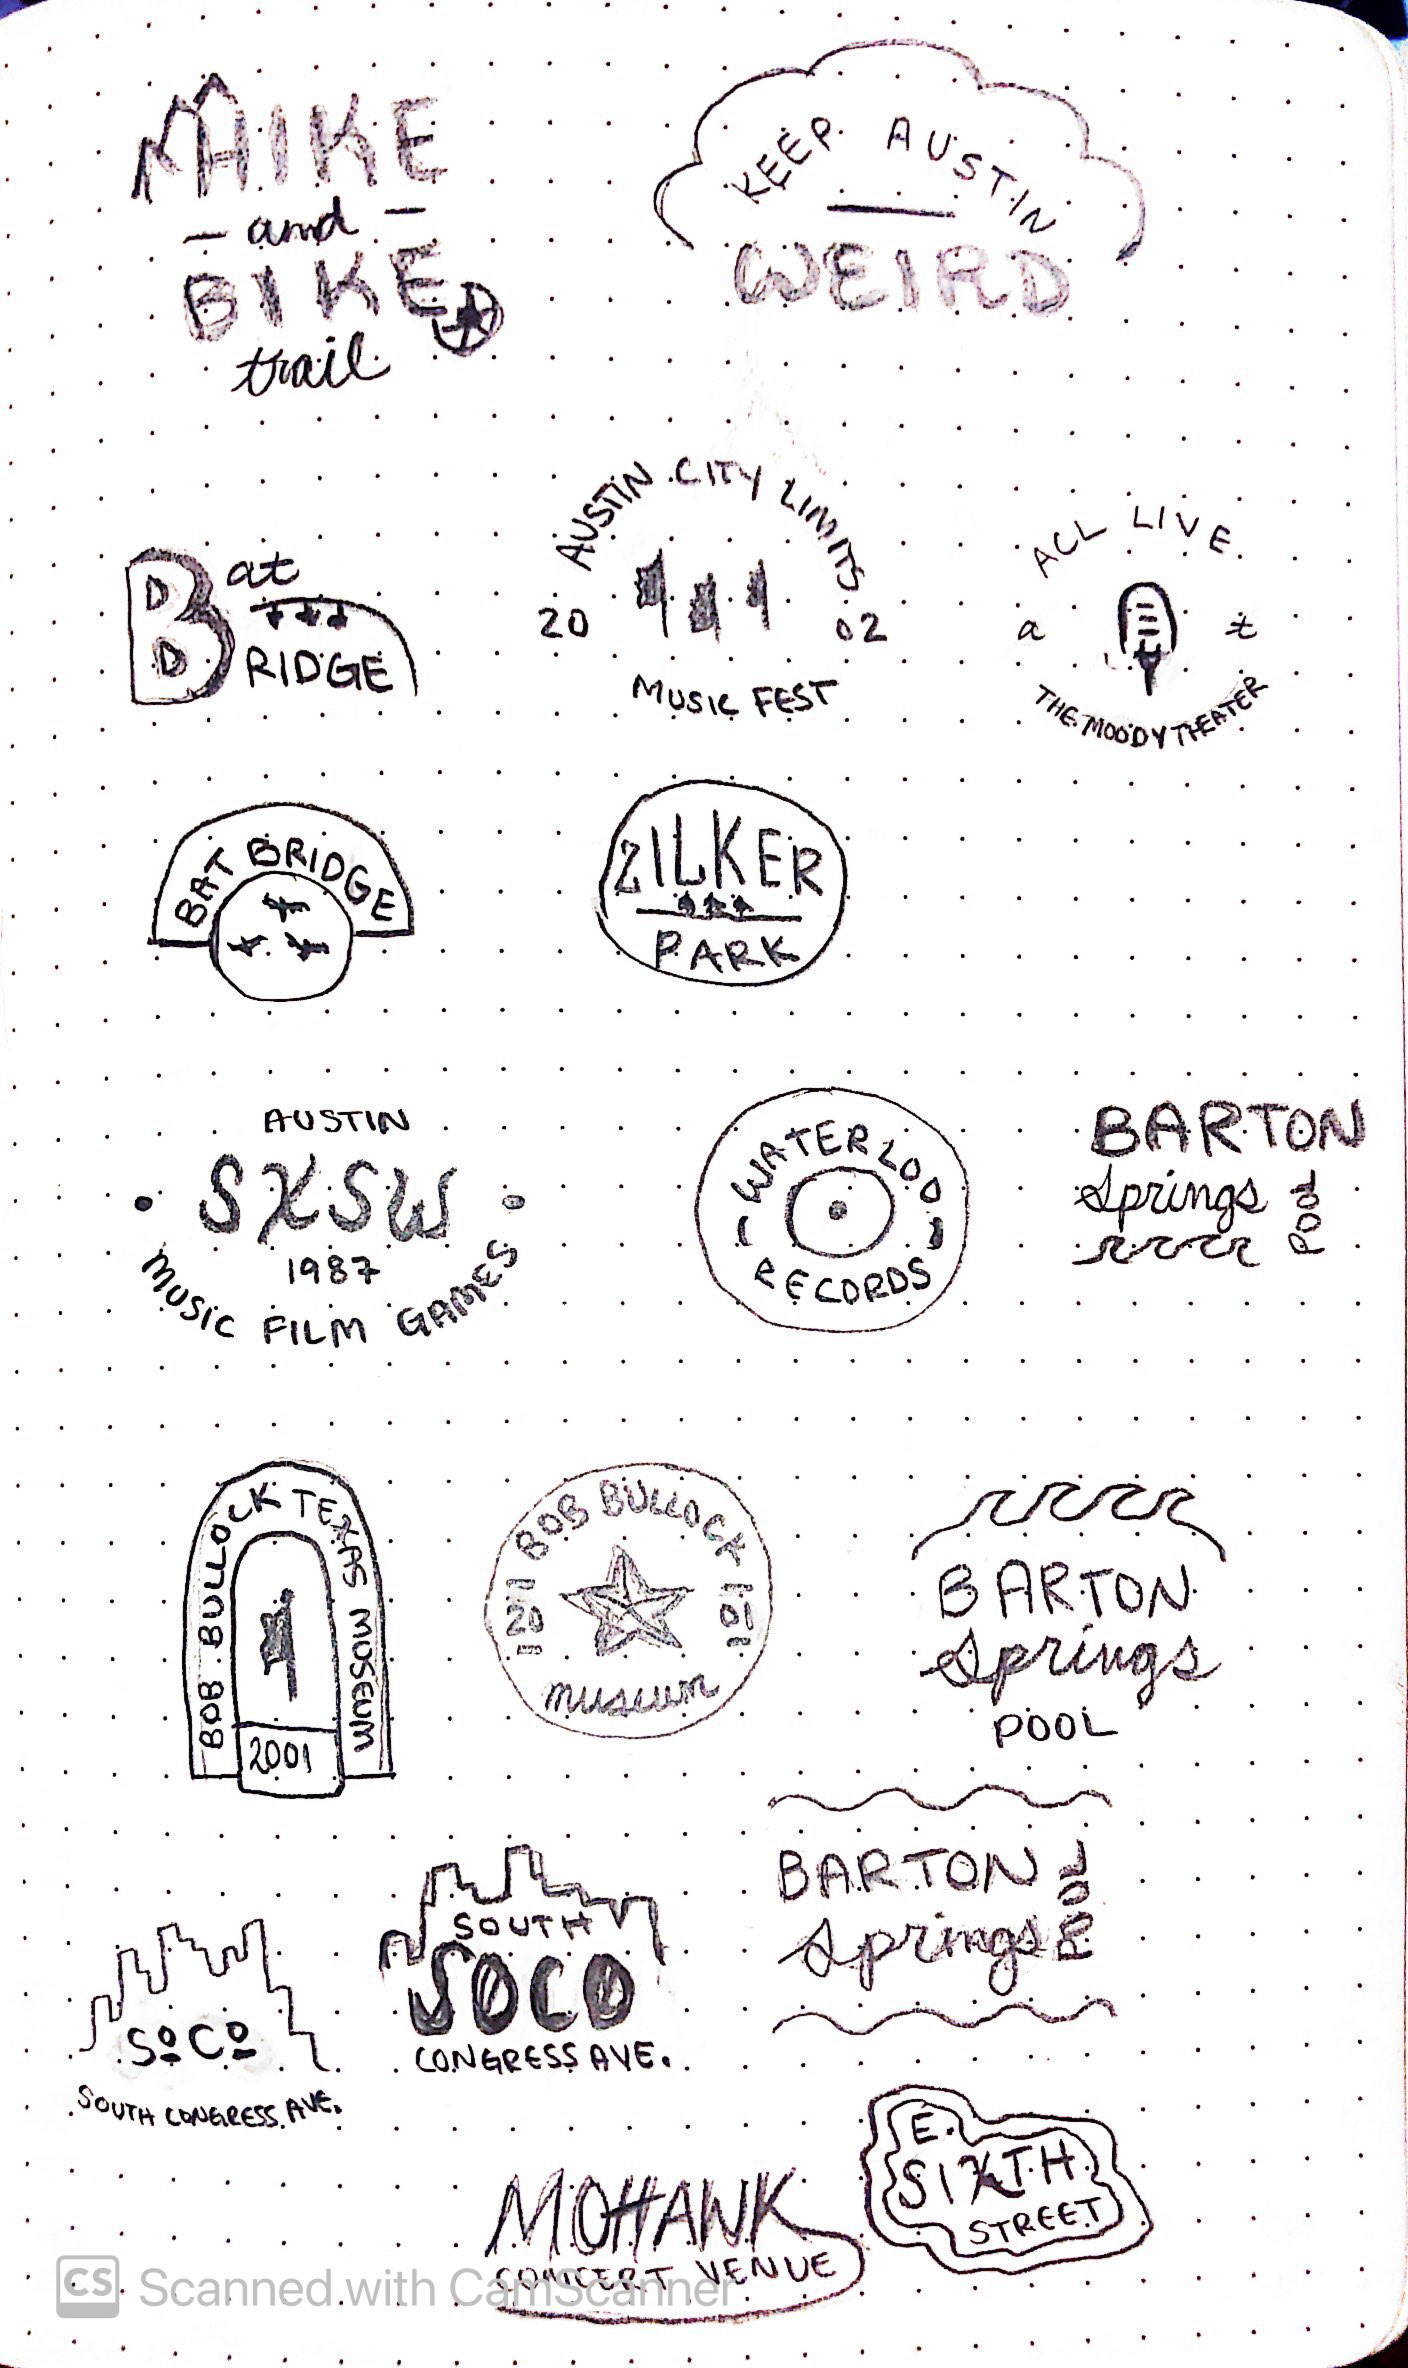 HIKE
and
BIKE
trail
KEEP AUSTIN
WEIRD
Bat
BRIDGE
AUSTIN CITY LIMITS
20 02
MUSIC FEST
ACL LIVE
a t
THE MOODY THEATER
BAT BRIDGE
ZILKER
PARK
AUSTIN
SXSW
1987
MUSIC FILM GAMES
WATERLOO
RECORDS
BARTON
Springs
POOL
BOB BULLOCK TEXAS MUSEUM
2001
BOB BULLOCK
museum
BARTON
Springs
POOL
SOCO
SOUTH CONGRESS AVE.
SOUTH
SOCO
CONGRESS AVE.
BARTON
Springs
POOL
E.
SIXTH
STREET
MOHAWK
CONCERT VENUE
CS Scanned with CamScanner